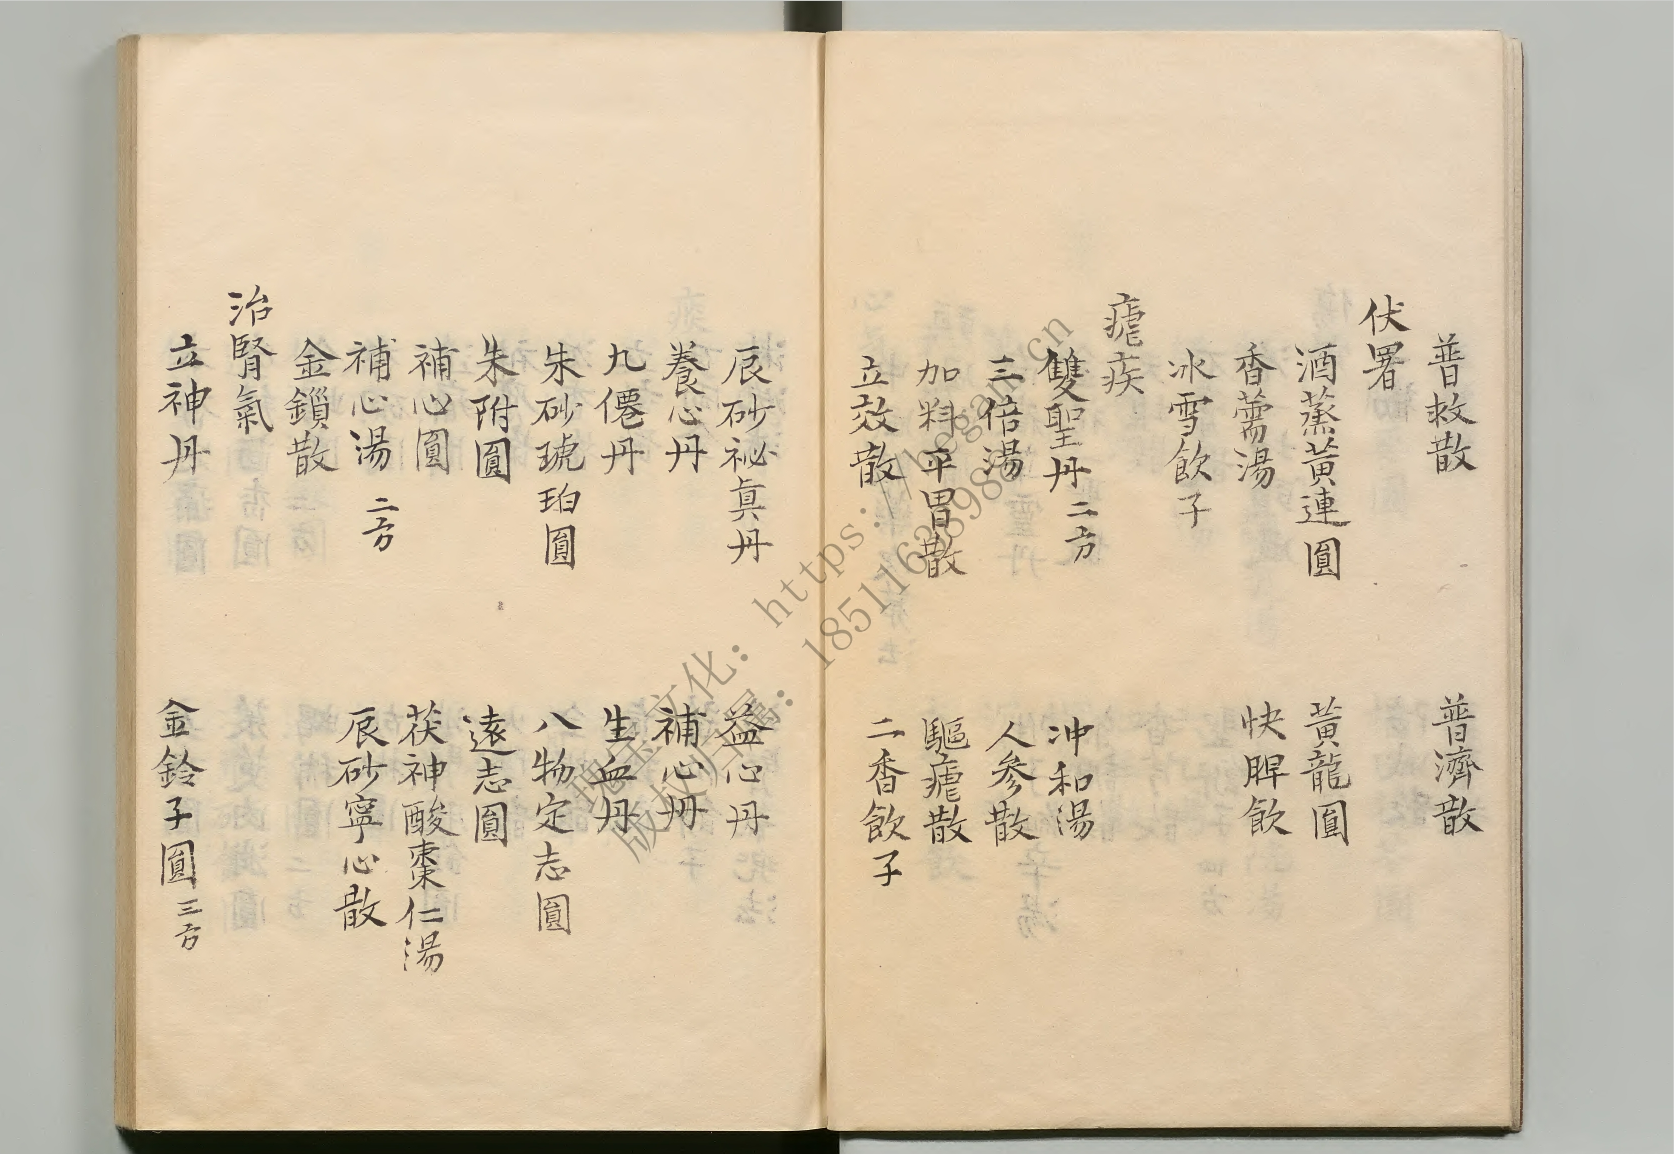 普救散　普濟散
伏署
酒蒸黃連圓　黃龍圓
香薷湯　快脾飲
冰雪飲子
瘧疾
雙聖丹二方　冲和湯
三倍湯　人參散
加料平胃散　驅瘧散
立效散　二香飲子
辰砂祕眞丹　益心丹
養心丹　補心丹
九僊丹　生血丹
朱砂琥珀圓　八物定志圓
朱附圓　遠志圓
補心圓　茯神酸棗仁湯
補心湯二方　辰砂寧心散
金鎖散
治腎氣
立神丹　金鈴子圓三方